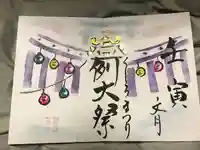 壬寅
文月
例大祭
まつり